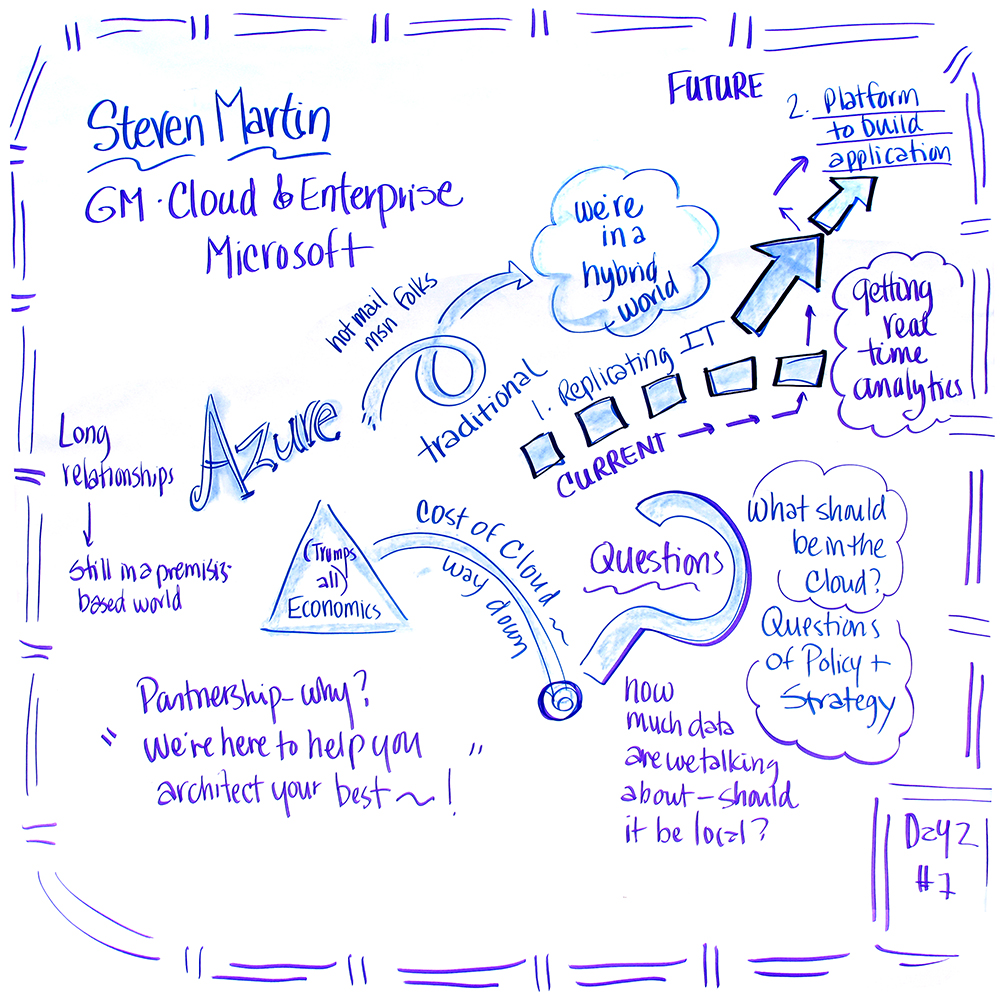 Steven Martin
GM · Cloud & Enterprise
Microsoft
FUTURE
2. Platform
to build
application
we're
in a
hybrid
world
hotmail
msn folks
Azure
traditional
1. Replicating IT
CURRENT
getting
real
time
analytics
Long
relationships
still in a premisis-
based world
(Trumps
all)
Economics
Cost of Cloud ~
way down
Questions
What should
be in the
Cloud?
Questions
of Policy +
Strategy
how
much data
are we talking
about - should
it be local?
Partnership - why?
" We're here to help you "
architect your best ~ !
Day 2
#7